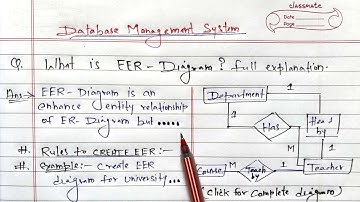 classmate
Date
Page
Database Management System
Q. What is EER-Diagram? full explanation.
Ans→ EER-Diagram is an
enhance entity relationship
of ER-Diagram but.....
#. Rules to CREATE EER:-
#. Example:- Create EER
diagram for university...
Department
1
1
Has
Head
by
M
1
Course
M
Teach
by
1
Teacher
(Click for complete diagram)